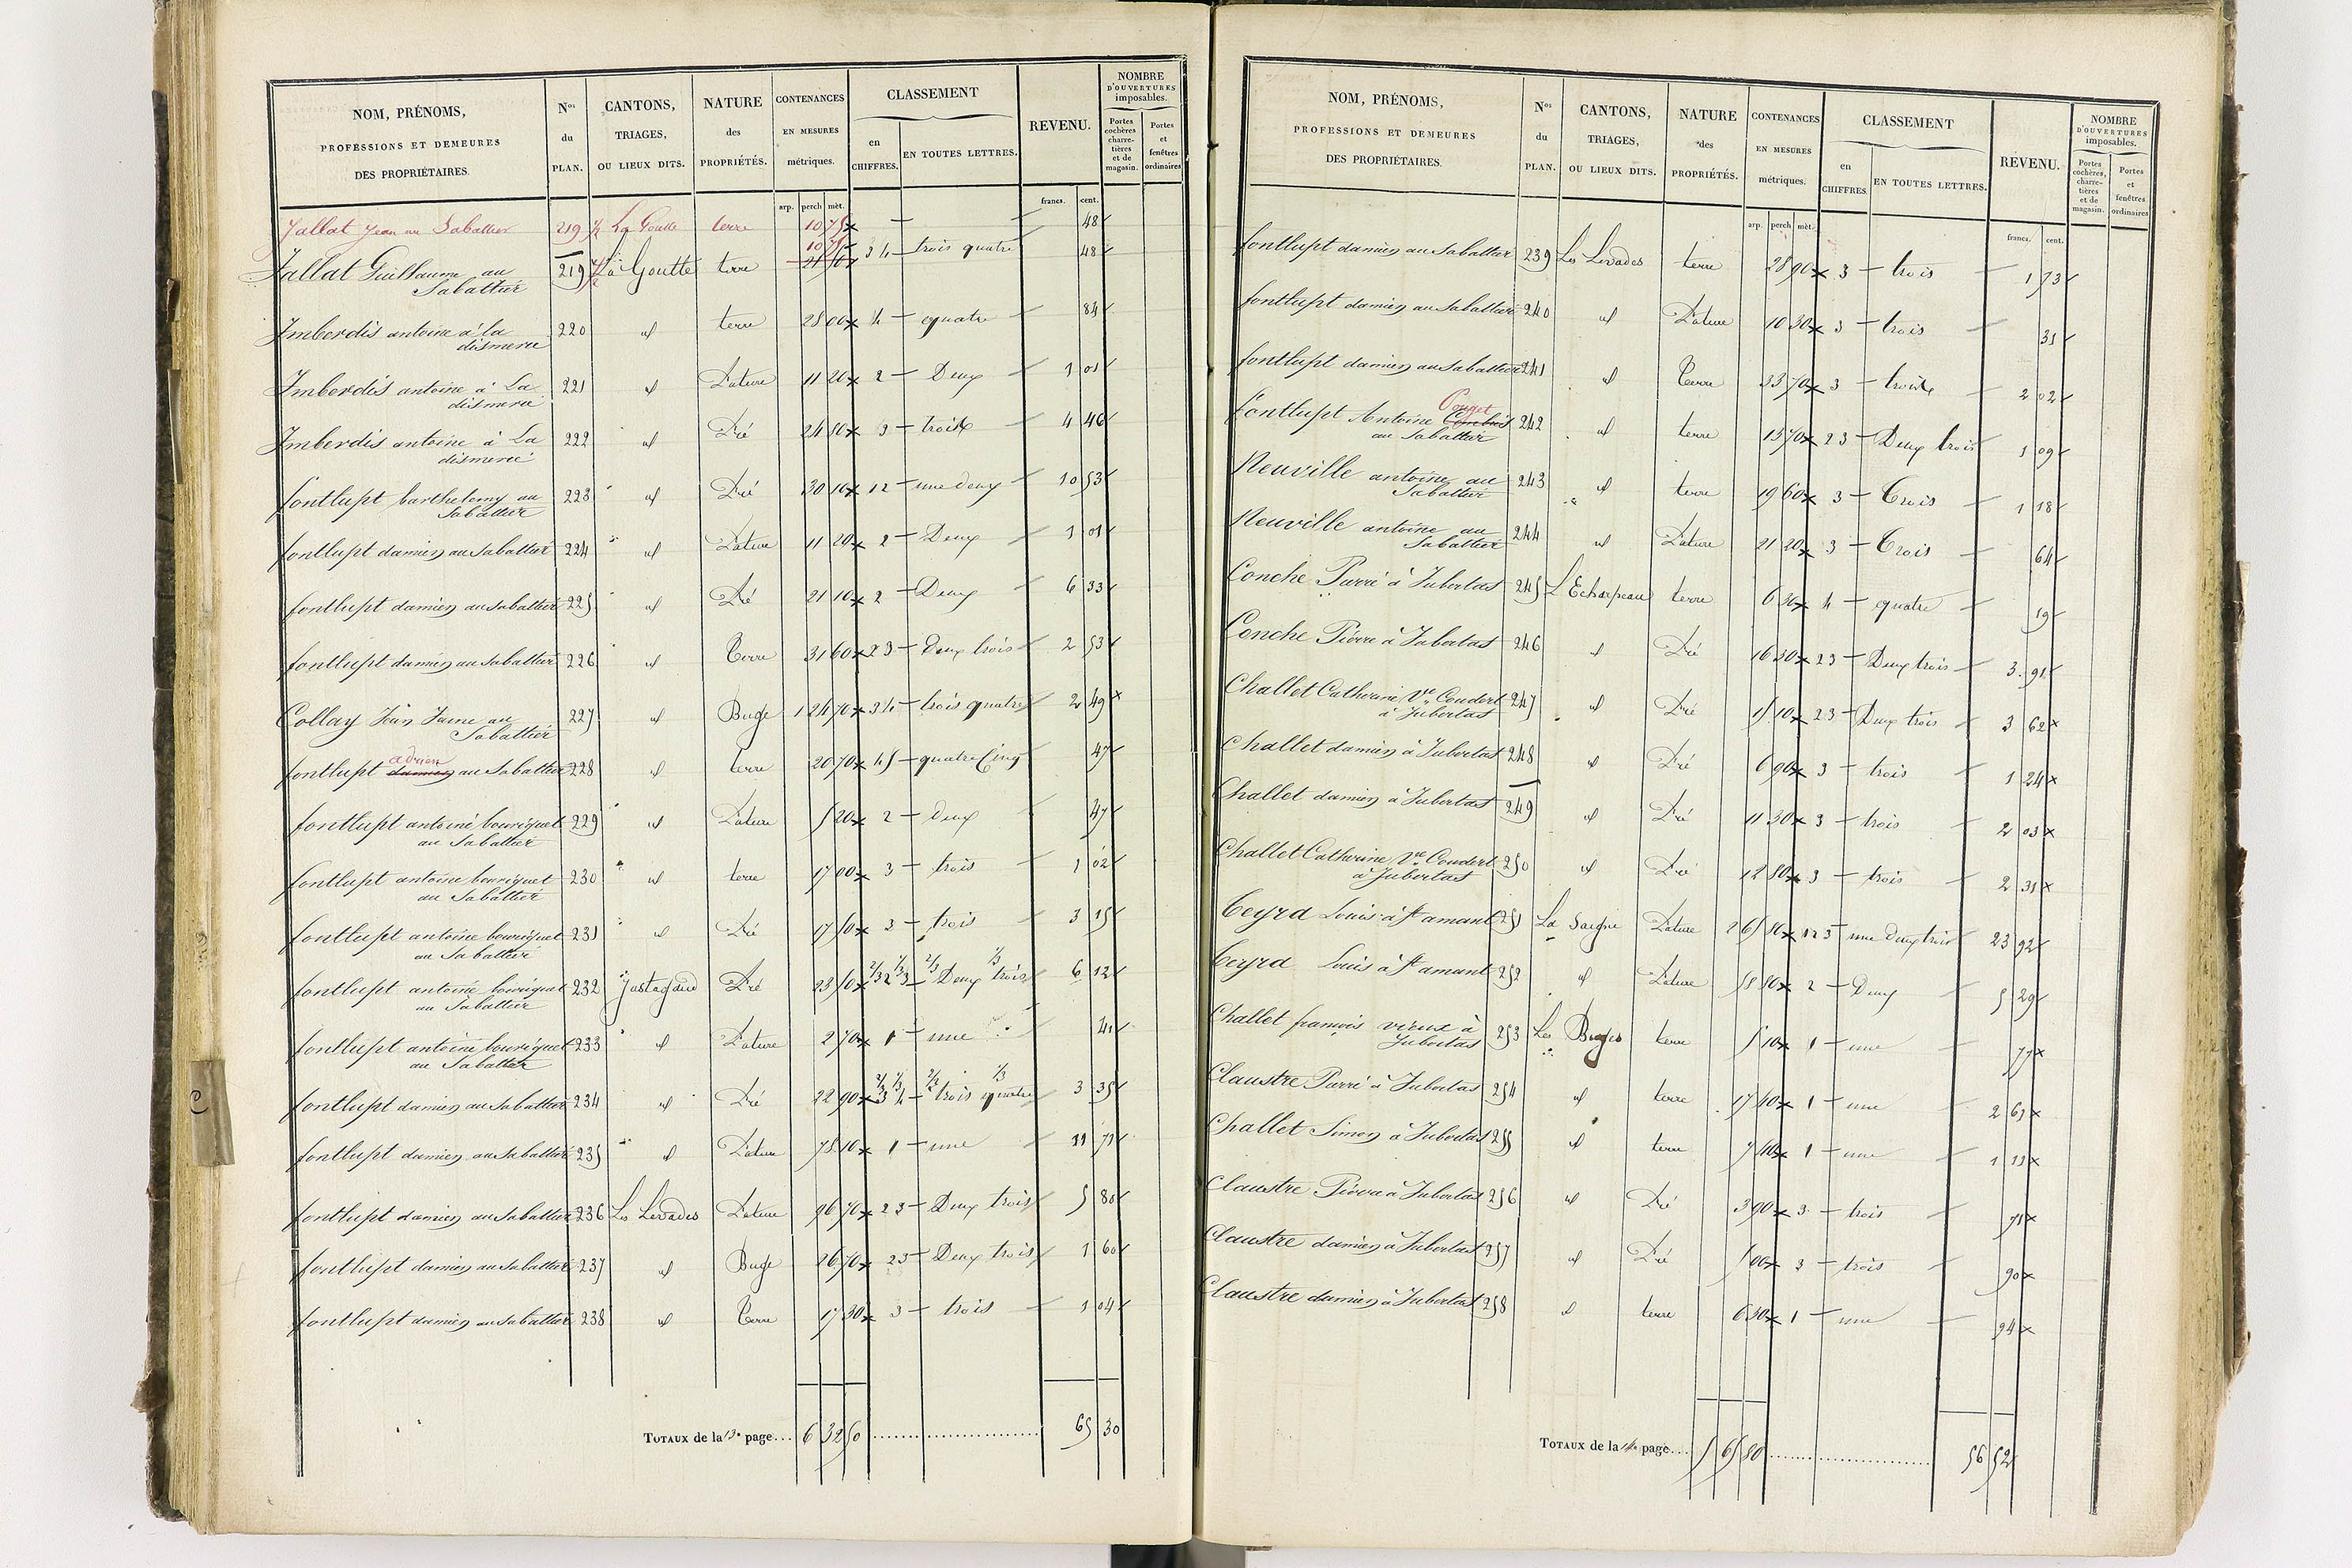 NOM, PRÉNOMS, PROFESSIONS ET DEMEURES DES PROPRIÉTAIRES. | Nos du PLAN. | CANTONS, TRIAGES, OU LIEUX DITS. | NATURE des PROPRIÉTÉS. | CONTENANCES EN MESURES métriques. | CLASSEMENT en CHIFFRES. | EN TOUTES LETTRES. | REVENU. | NOMBRE D'OUVERTURES imposables. Portes cochères charretières et de magasin. | Portes et fenêtres ordinaires
arp. perch mèt. francs. cent.
Jallat Jean au Sabattier 219 La Goutte terre 10 75 48
Jallat Guillaume au Sabattier 219 La Goutte terre 10 75 3 4 trois quatre 48
Imberdis antoine à la dismerie 220 id terre 28 00 4 quatre 84
Imberdis antoine à La dismerie 221 id Pature 11 20 2 Deux 1 01
Imberdis antoine à La dismerie 222 id Pré 24 80 3 trois 4 46
fontlupt barthelemy au Sabattier 223 id Pré 30 10 12 une deux 10 53
fontlupt damien au Sabattier 224 id Pature 11 20 2 Deux 1 01
fontlupt damien au Sabattier 225 id Pré 21 10 2 Deux 6 33
fontlupt damien au Sabattier 226 id Terre 31 60 23 deux trois 2 53
Collay Jean Jaune au Sabattier 227 id Buge 1 24 70 34 trois quatre 2 49
fontlupt adrien damien au Sabattier 228 id terre 20 70 45 quatre Cinq 47
fontlupt antoine bouriquet au Sabattier 229 id Pature 5 20 2 deux 47
fontlupt antoine bouriquet au Sabattier 230 id terre 17 00 3 trois 1 02
fontlupt antoine bouriquet au Sabattier 231 id Pré 17 50 3 trois 3 15
fontlupt antoine bouriquet au Sabattier 232 Justagaud Pré 23 50 2/3 2 1/3 3 2/3 Deux 1/3 trois 6 12
fontlupt antoine bouriquet au Sabattier 233 id Pature 2 70 1 une 41
fontlupt damien au Sabattier 234 id Pré 22 90 2/3 3 1/3 4 trois 1/3 quatre 3 35
fontlupt damien au Sabattier 235 id Pature 78 10 1 une 11 71
fontlupt damien au Sabattier 236 Les Levades Pature 96 70 23 Deux trois 5 80
fontlupt damien au Sabattier 237 id Buge 26 70 23 Deux trois 1 60
fontlupt damien au Sabattier 238 id Terre 17 30 3 trois 1 04
TOTAUX de la 13e page... 6 32 50 65 30
NOM, PRÉNOMS, PROFESSIONS ET DEMEURES DES PROPRIÉTAIRES. | Nos du PLAN. | CANTONS, TRIAGES, OU LIEUX DITS. | NATURE des PROPRIÉTÉS. | CONTENANCES EN MESURES métriques. | CLASSEMENT en CHIFFRES | EN TOUTES LETTRES. | REVENU. | NOMBRE D'OUVERTURES imposables. Portes cochères, charretières et de magasin. | Portes et fenêtres ordinaires
arp. perch mèt. francs. cent.
fontlupt damien au Sabattier 239 Les Levades terre 28 90 3 trois 1 73
fontlupt damien au Sabattier 240 id Pature 10 30 3 trois 31
fontlupt damien au Sabattier 241 id Terre 33 70 3 trois 2 02
fontlupt Antoine Pouget au Sabattier 242 id terre 13 70 23 Deux trois 1 09
Neuville antoine au Sabattier 243 id terre 19 60 3 Trois 1 18
Neuville antoine au Sabattier 244 id Pature 21 20 3 Trois 64
Conche Pierre à Jubertas 245 L'Echarpeau terre 6 30 4 quatre 19
Conche Pierre à Jubertas 246 id Pré 16 30 23 Deux trois 3 91
Challet Catherine Ve Coudert à Jubertas 247 id Pré 15 10 23 Deux trois 3 62
Challet damien à Jubertas 248 id Pré 6 90 3 trois 1 24
Challet damien à Jubertas 249 id Pré 11 30 3 trois 2 03
Challet Catherine Ve Coudert à Jubertas 250 id Pré 12 80 3 trois 2 31
Teyra Louis à St amant 251 La Saigne Pature 2 65 80 123 une deux trois 23 92
Teyra Louis à St amant 252 id Pature 58 80 2 Deux 5 29
Challet françois vieux à Jubertas 253 Les Buges terre 5 10 1 une 77
Claustre Pierre à Jubertas 254 id terre 17 40 1 une 2 61
Challet Simon à Jubertas 255 id terre 7 40 1 une 1 11
Claustre Pierre à Jubertas 256 id Pré 3 90 3 trois 71
Claustre damien à Jubertas 257 id Pré 5 00 3 trois 90
Claustre damien à Jubertas 258 id terre 6 30 1 une 94
TOTAUX de la 14e page... 5 65 80 56 52